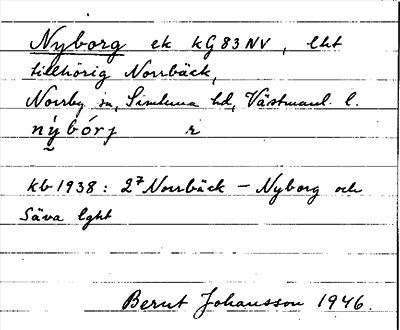 Nyborg ek kG 83 NV, lht
tillhörig Norrbäck,
Norrby sn, Simtuna hd, Västmanl. l.
nýbórj r
kb 1938: 2⁷ Norrbäck – Nyborg och
Säva lght
Bernt Johansson 1946.